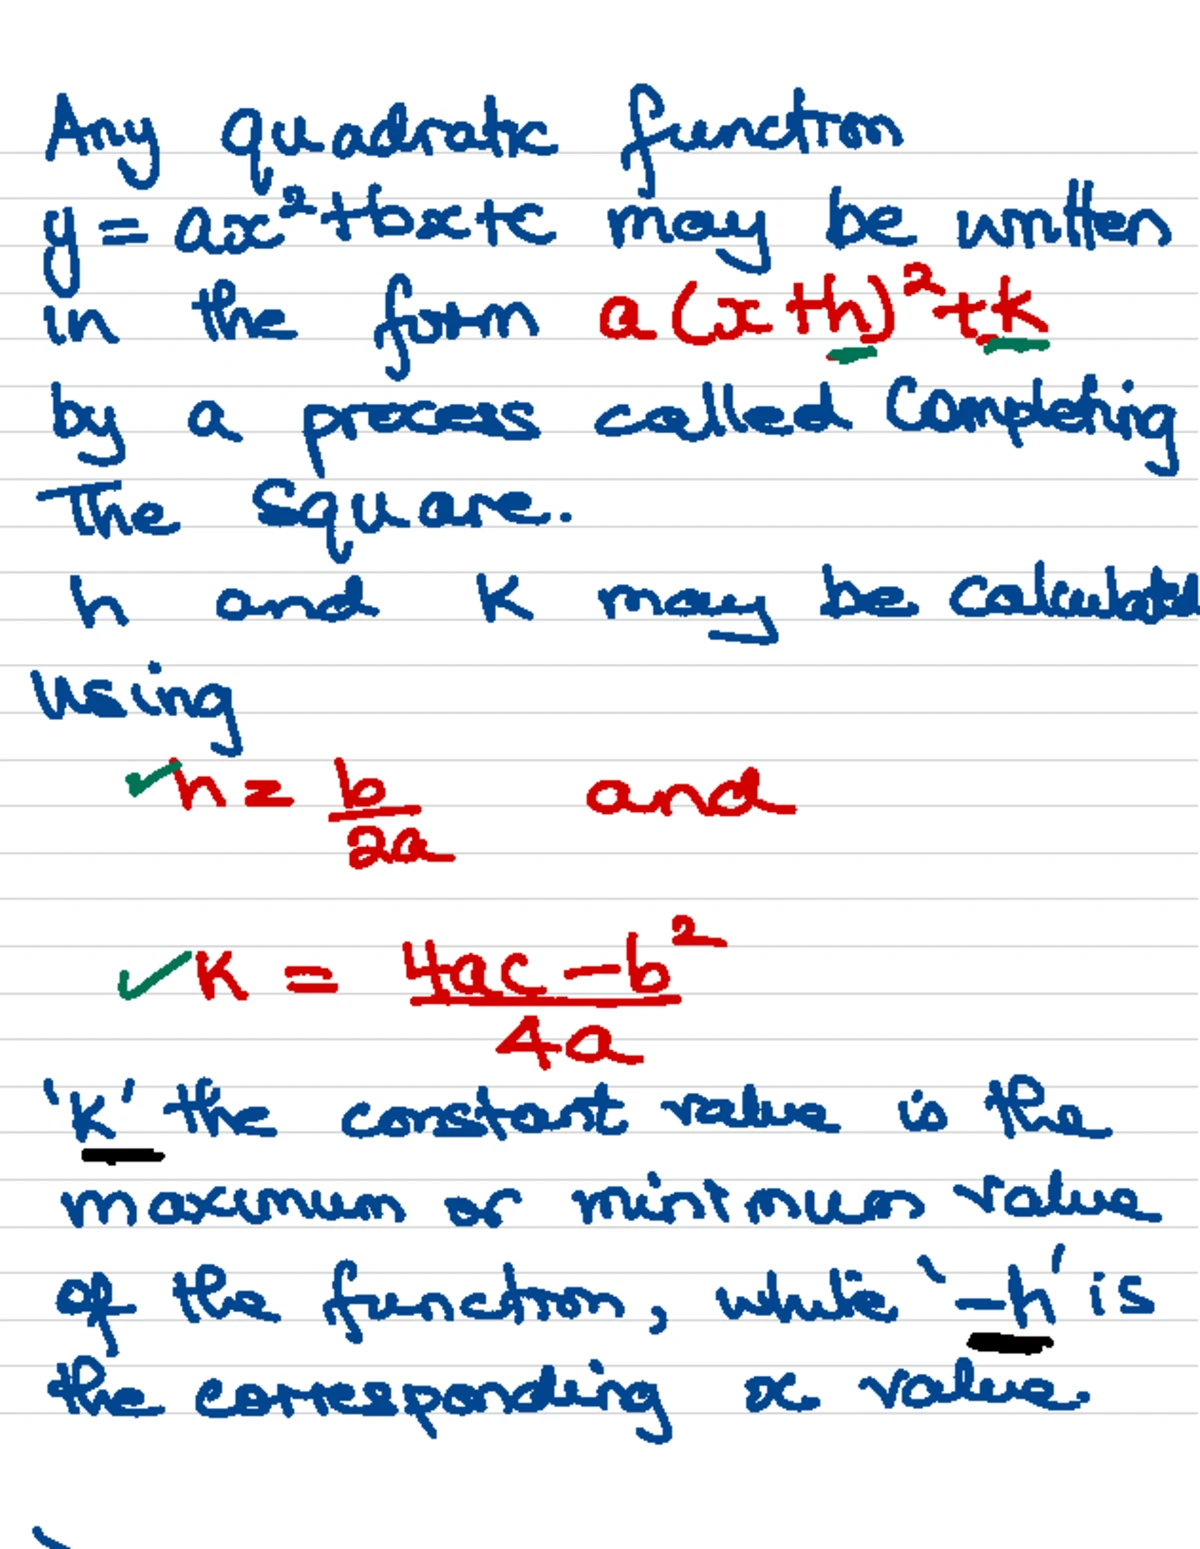 Any quadratic function
y = ax²+bx+c may be written
in the form a(x+h)²+k
by a process called Completing
The Square.
h and K may be Calculated
Using
✓h = b/2a and
✓K = 4ac-b²/4a
'K' the constant value is the
maximum or minimum value
of the function, while '-h' is
the corresponding x value.